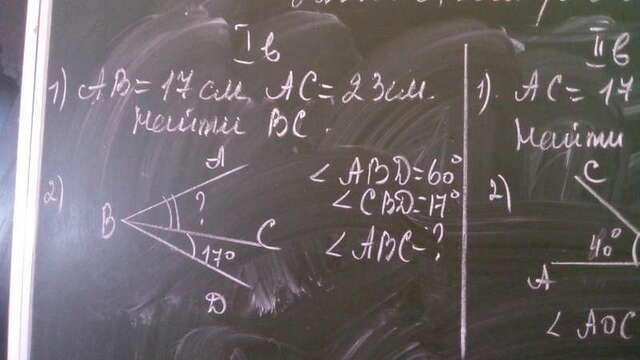 I в
1) AB = 17 см, AC = 23 см.
Найти BC.
2)
A
B
?
C
17°
D
∠ABD = 60°
∠CBD = 17°
∠ABC - ?
II в
1). AC = 17
Найти
2)
C
40°
A
∠AOC